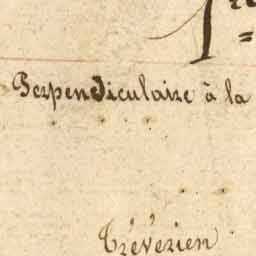 Perpendiculaire à la
Trévérien